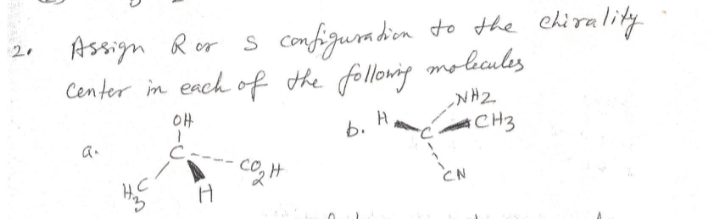 2. Assign R or S configuration to the chirality
center in each of the following molecules
a.
OH
C
CO2H
H3C
H
b.
H
NH2
C
CH3
CN